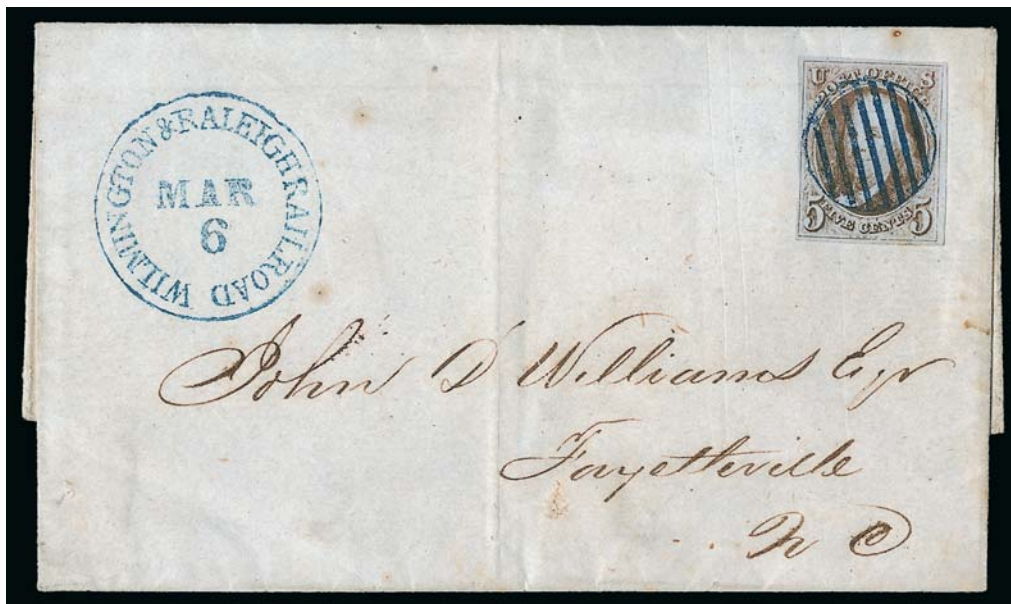 WILMINGTON & RALEIGH RAILROAD
MAR
6
U S
POST OFFICE
5 FIVE CENTS 5
John D Williams Esqr
Fayetteville
N C